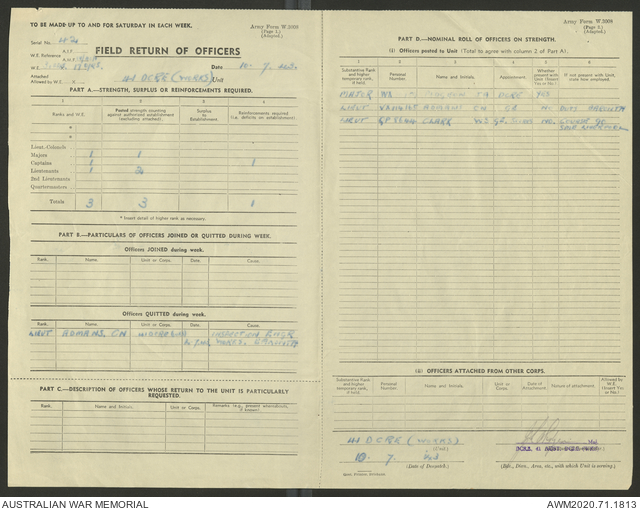 TO BE MADE-UP TO AND FOR SATURDAY IN EACH WEEK.
Army Form W.3008
(Page 1.)
(Adapted.)
Serial No.
A.I.F.
W.E. Reference A.M.F.
W.E.
FIELD RETURN OF OFFICERS
Date 10. 7. 43.
Attached
Allowed by W.E. x
41 DCRE (WORKS) Unit
PART A.—STRENGTH, SURPLUS OR REINFORCEMENTS REQUIRED.
1 2 3 4
Ranks and W.E. Posted strength counting against authorised establishment (excluding attached). Surplus to Establishment. Reinforcements required (i.e. deficits on establishment).
*
*
Lieut.-Colonels
Majors 1 1
Captains 1 1
Lieutenants 1 2
2nd Lieutenants
Quartermasters
Totals 3 3 1
* Insert detail of higher rank as necessary.
PART B.—PARTICULARS OF OFFICERS JOINED OR QUITTED DURING WEEK.
Officers JOINED during week.
Rank. Name. Unit or Corps. Date. Cause.
Officers QUITTED during week.
Rank. Name. Unit or Corps. Date. Cause.
LIEUT ADMANS, CH INSPECTION
WORKS.
PART C.—DESCRIPTION OF OFFICERS WHOSE RETURN TO THE UNIT IS PARTICULARLY REQUESTED.
Rank. Name and Initials. Unit or Corps. Remarks (e.g., present whereabouts, if known).
Army Form W.3008
(Page 2.)
(Adapted.)
PART D.—NOMINAL ROLL OF OFFICERS ON STRENGTH.
(i) Officers posted to Unit (Total to agree with column 2 of Part A).
Substantive Rank and higher temporary rank, if held. Personal Number. Name and Initials. Appointment. Whether present with Unit (Insert Yes or No.) If not present with Unit, state how employed.
MAJOR DCRE YES
LIEUT CH
LIEUT CLARK NO.
(ii) OFFICERS ATTACHED FROM OTHER CORPS.
Substantive Rank and higher temporary rank, if held. Personal Number. Name and Initials. Unit or Corps. Date of Attachment. Nature of attachment. Allowed by W.E. (Insert Yes or No.)
41 DCRE (WORKS)
(Unit)
Maj.
10. 7. 43
(Date of Despatch.)
(Bde., Divn., Area, etc., with which Unit is serving.)
AUSTRALIAN WAR MEMORIAL
AWM2020.71.1813